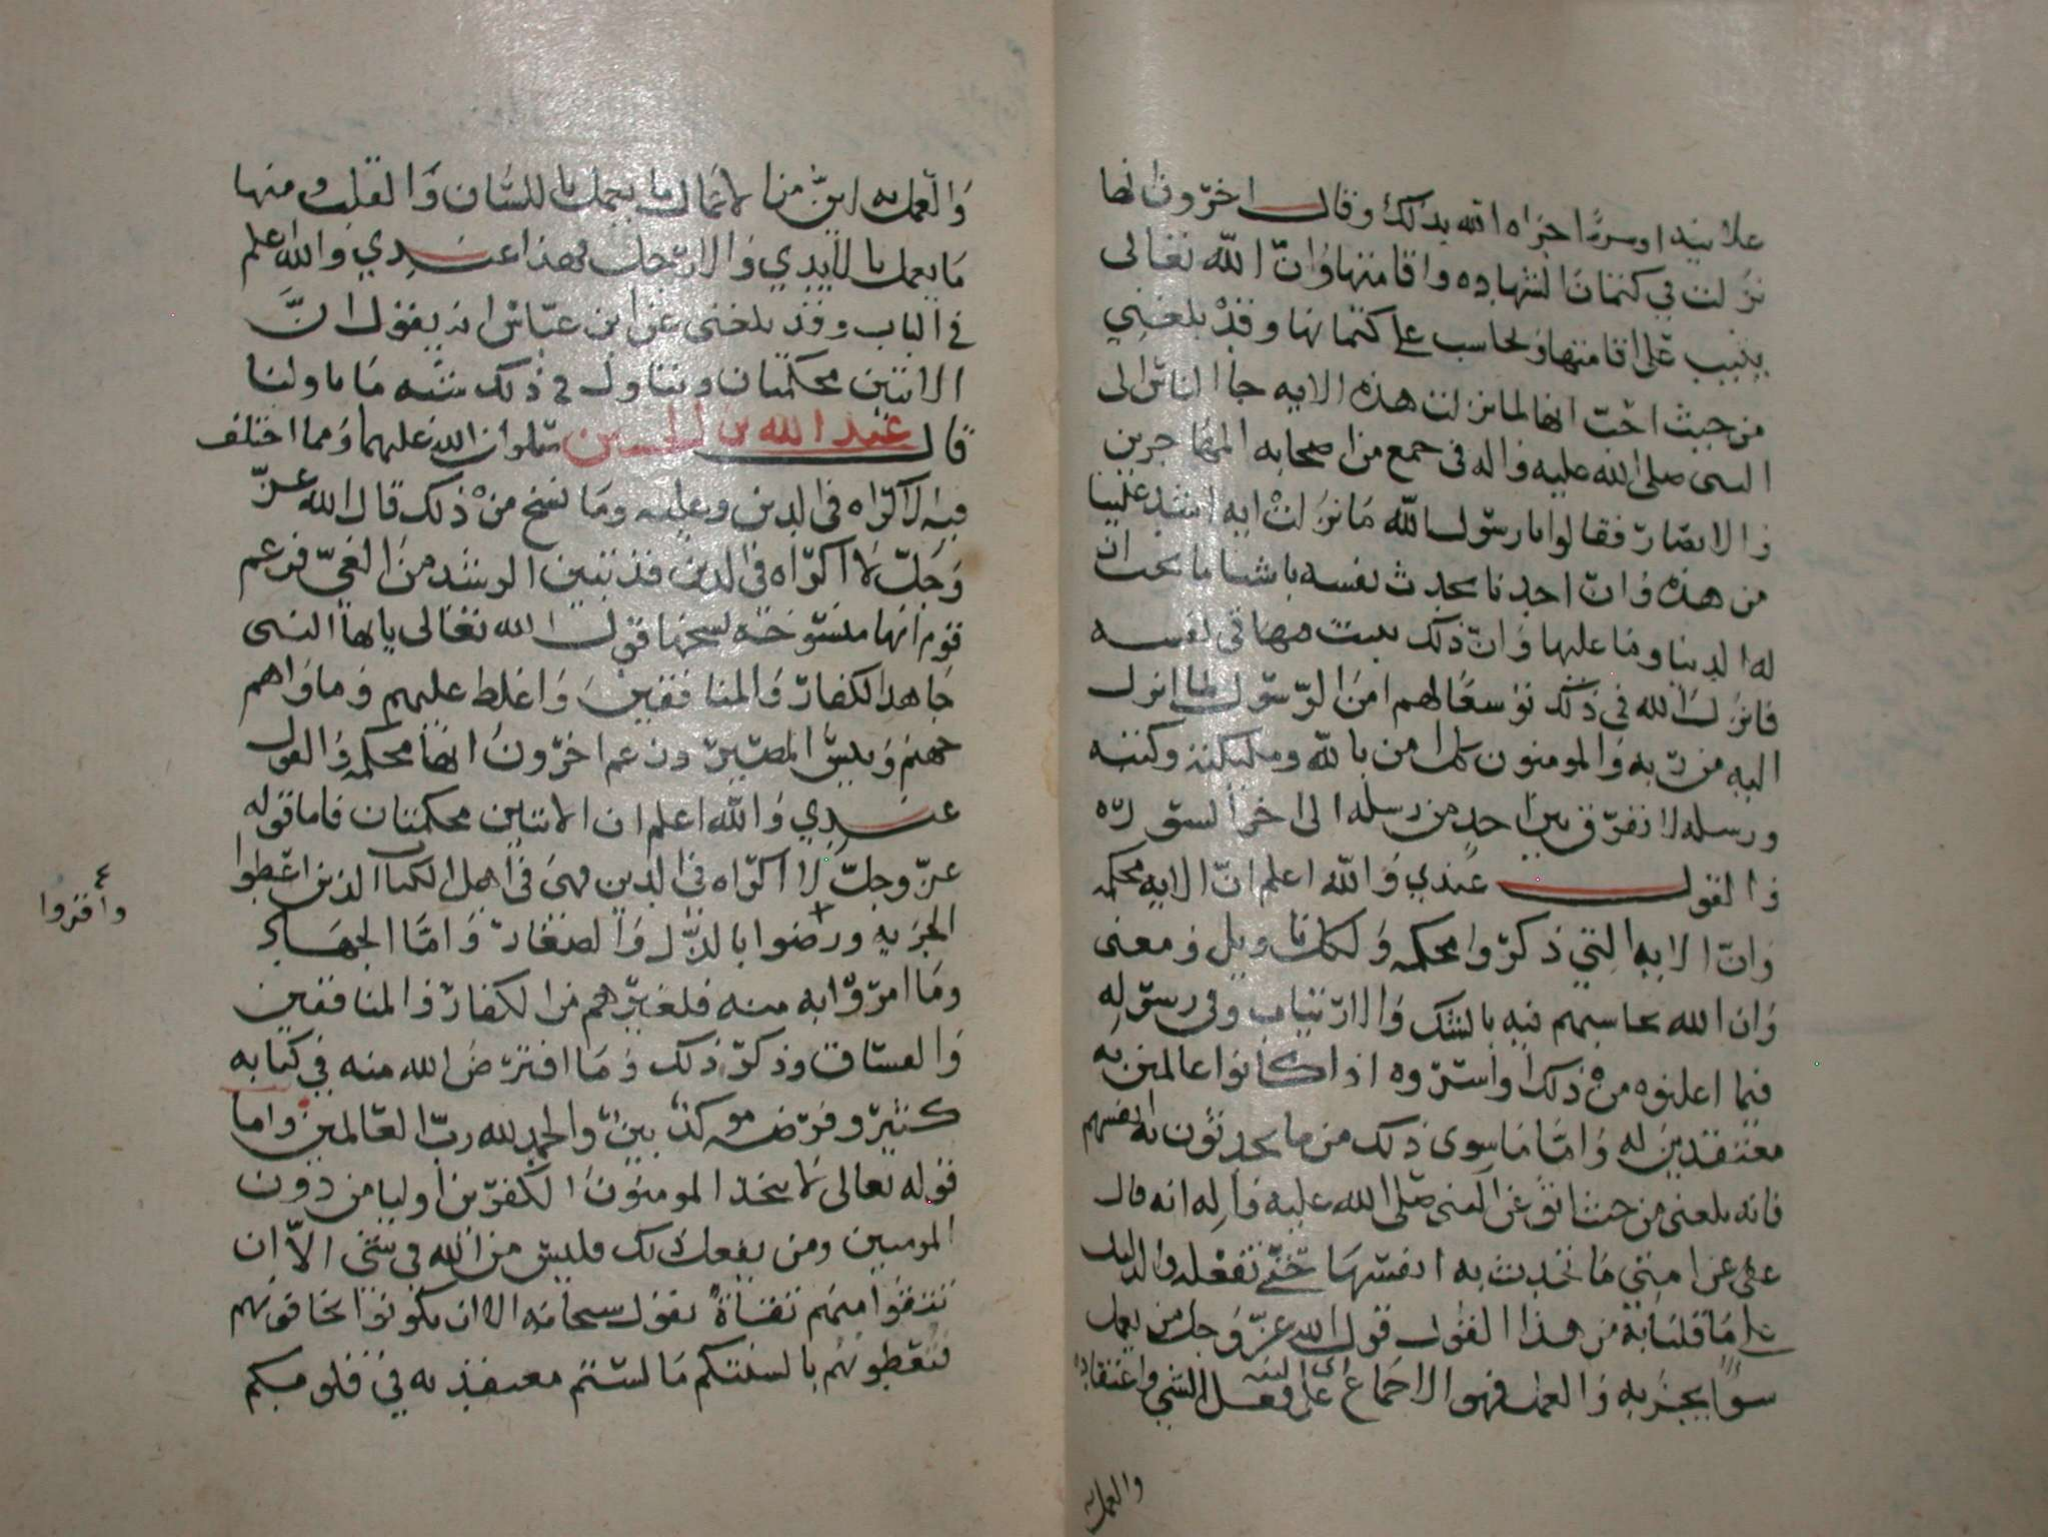 علانيه او سرا اجزاه الله بذلك وقال اخرون انها
نزلت في كتمان الشهاده واقامتها وان الله تعالى
يثيب على اقامتها ويحاسب على كتمانها وقد بلغني
من حيث احب انها لما نزلت هذه الايه جا الناس الى
النبى صلى الله عليه واله فى جمع من اصحابه المهاجرين
والانصار فقالوا يارسول الله ما نزلت ايه اشد علينا
من هذه وان احدنا يحدث نفسه باشيا ما يحب ان
له الدنيا وما عليها وان ذلك يبيت معها فى نفسه
فانزل الله فى ذلك توسعا لهم امن الرسول بما انزل
اليه من ربه والمومنون كل امن بالله وملئكته وكتبه
ورسله لا نفرق بين احد من رسله الى اخر السوره
والقول عندي والله اعلم ان الايه محكمه
وان الايه التي ذكروا محكمه ولكل تاويل ومعنى
وان الله يحاسبهم فيه بالشك والارتياب وفى رسوله
فيما اعلنوه من ذلك واسروه اذا كانوا عالمين به
معتقدين له واما ما سوى ذلك من ما يحدثون به انفسهم
فانه بلغنى من حيث اثق عن النبى صلى الله عليه واله انه قال
عفى عن امتي ما تحدث به انفسها حتى تفعله والدليل
على ما قلنا به من هذا القول قول الله عز وجل من يعمل
سوا يجز به والعمل فهو الاجماع اي النيه على فعل الشي واعتقاده
والعمل به
والعمل به اين من الاعمال ما يعمل باللسان والقلب ومنها
ما يعمل بالايدي والارجل فهذا عندي والله اعلم
في الباب وقد بلغنى عن ابن عباس انه يقول ان
الايتين محكمتان ويتاول في ذلك شبه ما تاولنا
قال عبد الله بن الحسين صلوات الله عليهما ومما اختلف
فيه لا اكراه فى الدين وعليه وما نسخ من ذلك قال الله عز
وجل لا اكراه فى الدين قد تبين الرشد من الغي فزعم
قوم انها منسوخه نسخها قول الله تعالى يا ايها النبى
جاهد الكفار والمنافقين واغلظ عليهم وماواهم
جهنم وبيس المصير وزعم اخرون انها محكمه والقول
عندي والله اعلم ان الايتين محكمتان فاما قوله
عز وجل لا اكراه فى الدين فهى فى اهل الكتاب الذين اعطوا
الجزيه ورضوا بالذل والصغار واما الجهاد
وأقروا
وما امروا به منه فلغيرهم من الكفار والمنافقين
والفساق وذكر ذلك وما افترض الله منه في كتابه
كثير وفرضه موكد بين والحمد لله رب العالمين واما
قوله تعالى لا يتخذ المومنون الكفرين اوليا من دون
المومنين ومن يفعل ذلك فليس من الله في شي الا ان
تتقوا منهم تقاة يقول سبحانه الا ان يكونوا تخافونهم
فتعطونهم بالسنتكم ما لستم معتقديه في قلوبكم